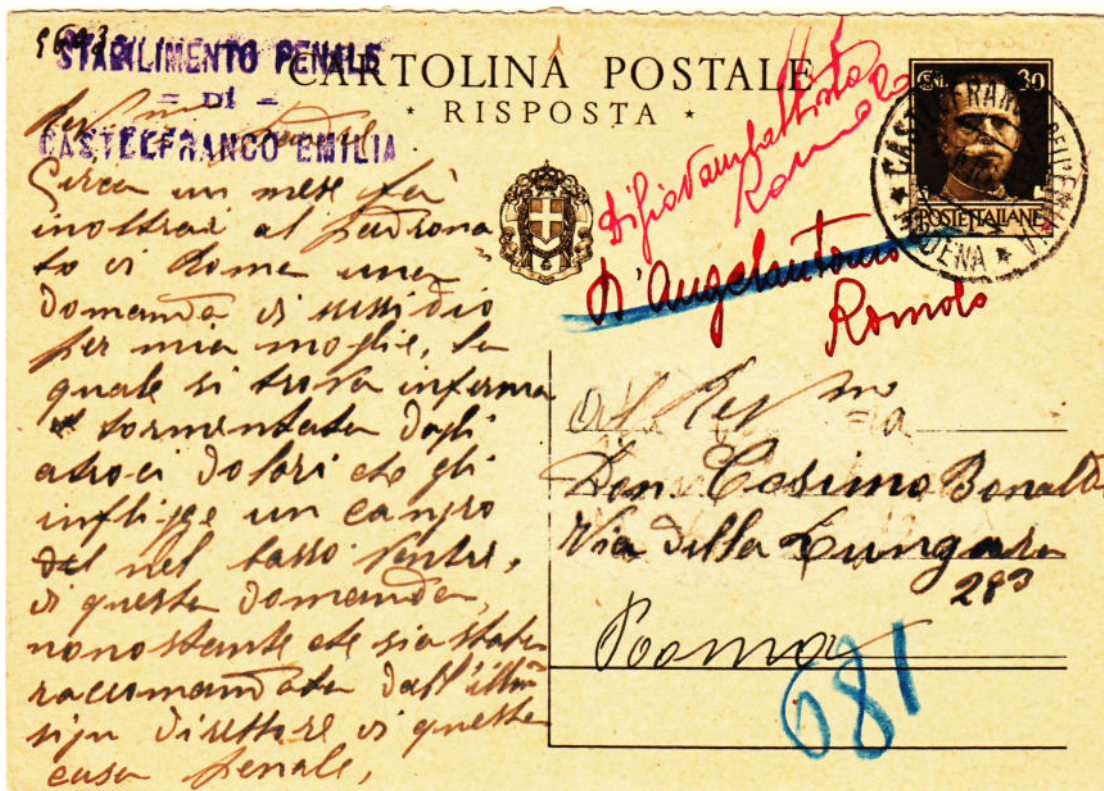 5643
STABILIMENTO PENALE
= DI =
CASTELFRANCO EMILIA
CARTOLINA POSTALE
* RISPOSTA *
Cent. 30
POSTE ITALIANE
CASTELFRANCO DELL'EMILIA
* MODENA *
Digiovambattista
Romolo
D'Angelantonio
Romolo
Circa un mese fà
inoltrai al padrona
to di Roma una
domanda di sussidio
per mia moglie, la
quale si trova inferma
e tormentata dagli
atroci dolori che gli
infligge un cangro
nel basso ventre,
di questa domanda,
nonostante che sia stata
raccomandata dall'
sign direttore di questa
casa penale,
Al Rev mo
Don Cosimo Bonaldi
Via della Lungara
283
Roma
081